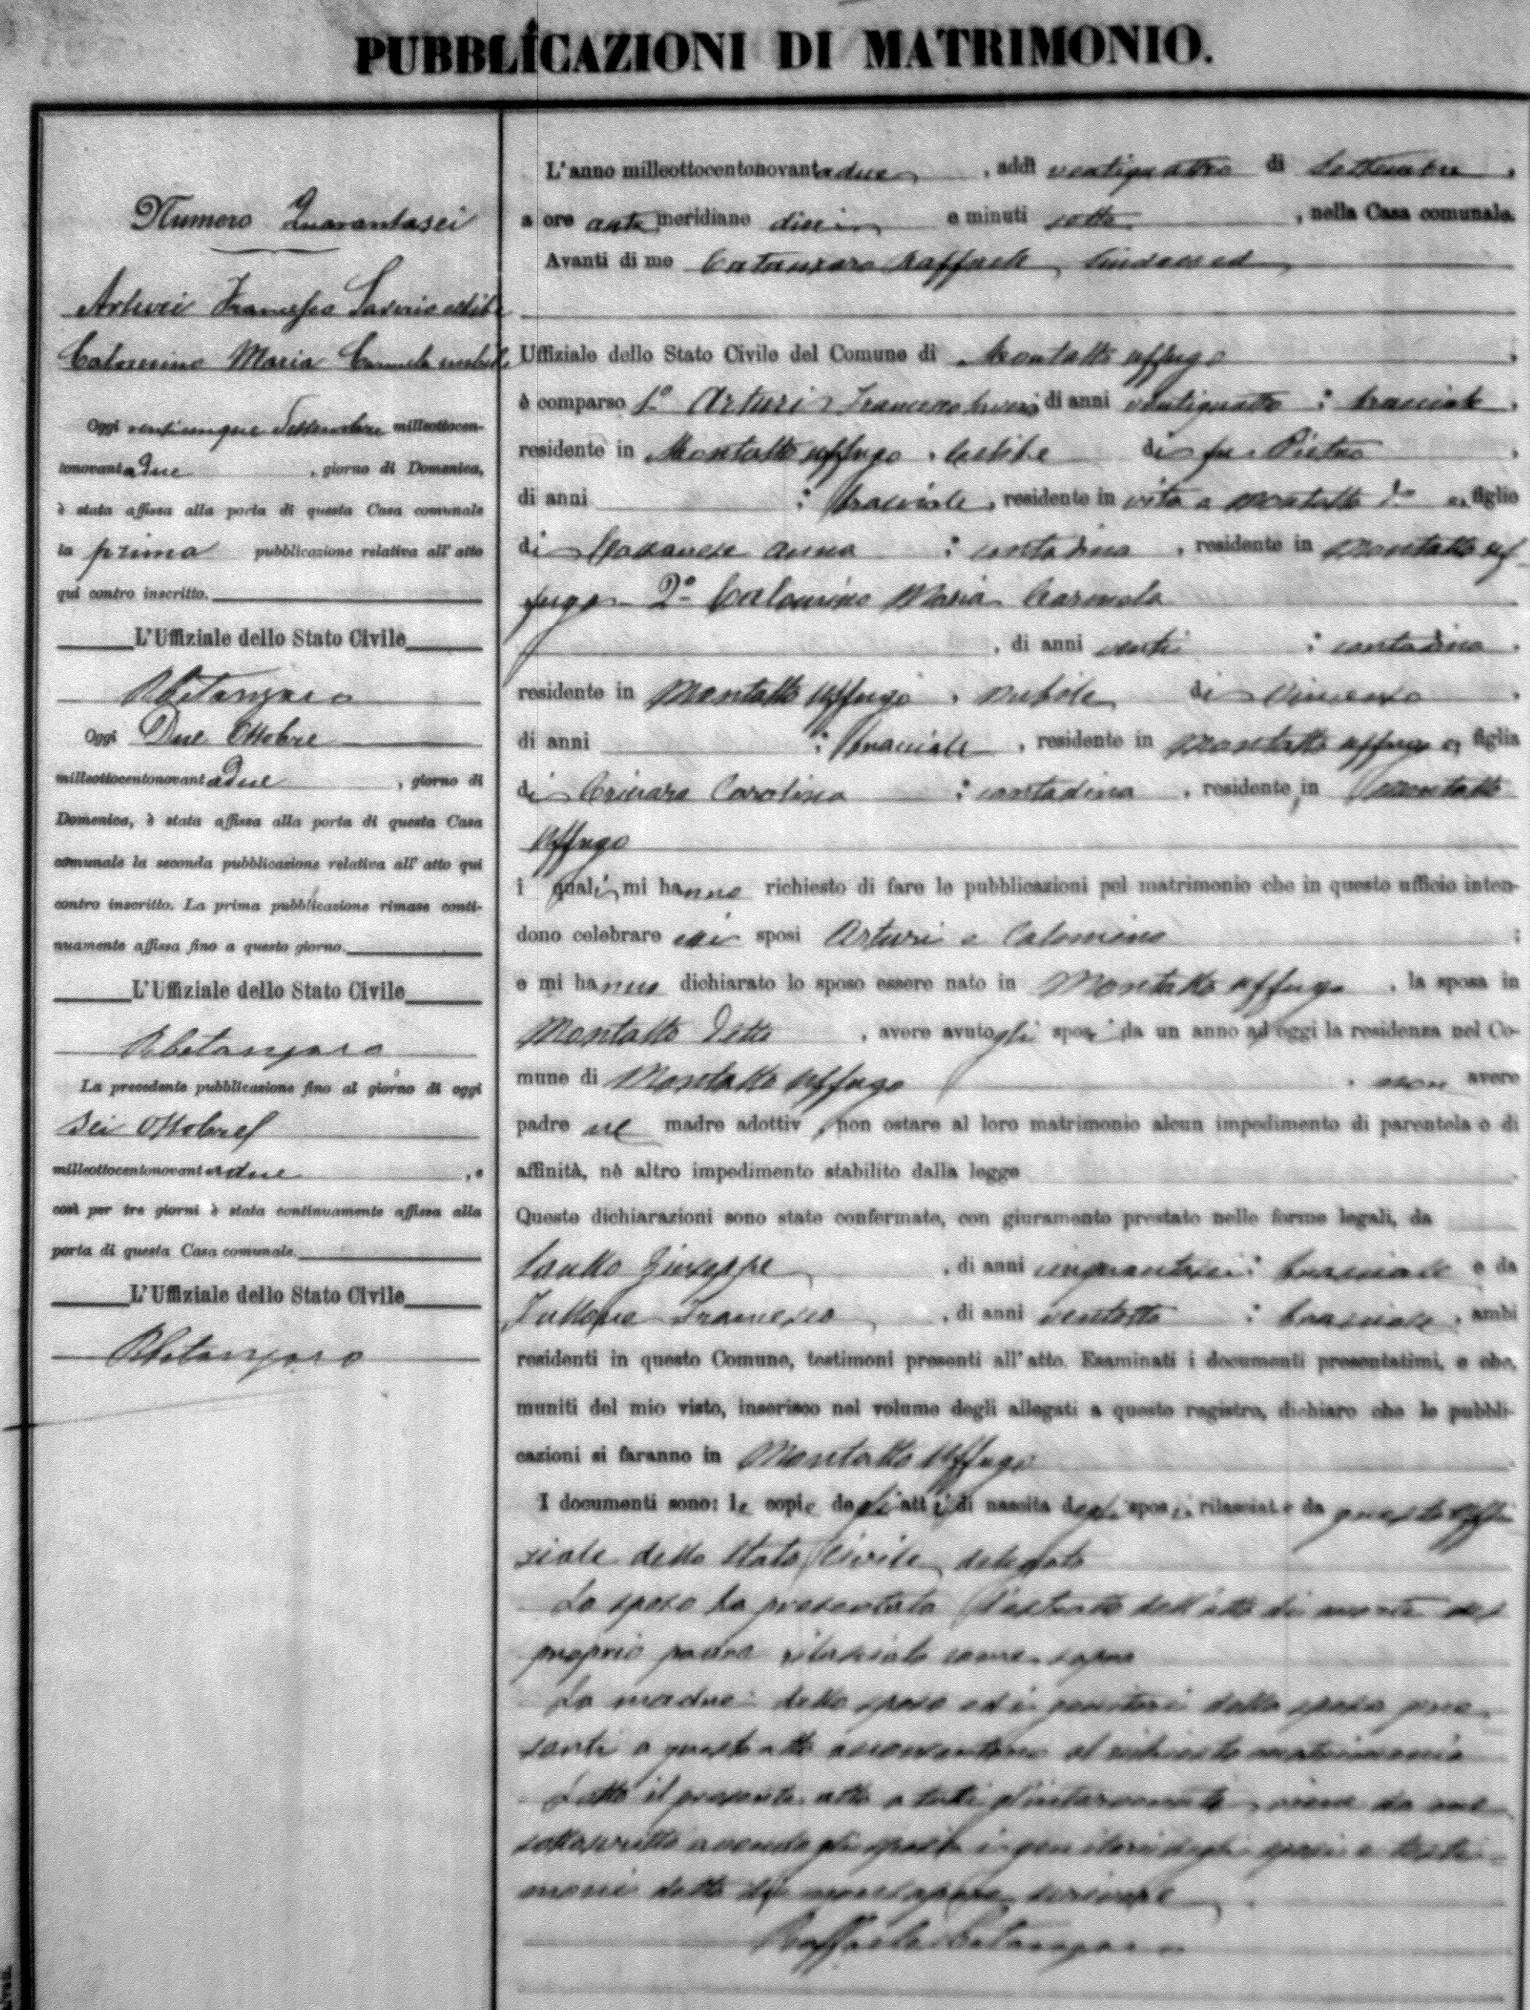 PUBBLICAZIONI DI MATRIMONIO.
Numero Quarantasei
Arturi Francesco Saverio celibe
Calomino Maria Carmela nubile
Oggi venticinque Settembre milleottocen-
tonovantadue, giorno di Domenica,
è stata affissa alla porta di questa Casa comunale
la prima pubblicazione relativa all'atto
qui contro inscritto.
L'Uffiziale dello Stato Civile
RCatanzaro
Oggi Due Ottobre
milleottocentonovantadue, giorno di
Domenica, è stata affissa alla porta di questa Casa
comunale la seconda pubblicazione relativa all'atto qui
contro inscritto. La prima pubblicazione rimase conti-
nuamente affissa fino a questo giorno.
L'Uffiziale dello Stato Civile
RCatanzaro
La precedente pubblicazione fino al giorno di oggi
Sei Ottobre
milleottocentonovantadue, e
così per tre giorni è stata continuamente affissa alla
porta di questa Casa comunale.
L'Uffiziale dello Stato Civile
RCatanzaro
L'anno milleottocentonovantadue, addì ventiquattro di Settembre,
a ore antimeridiane dieci e minuti sette, nella Casa comunale.
Avanti di me Catanzaro Raffaele Sindaco ed
Uffiziale dello Stato Civile del Comune di Montalto Uffugo,
è comparso 1º Arturi Francesco Saverio di anni ventiquattro; bracciale,
residente in Montalto Uffugo, celibe di fu Pietro,
di anni ; bracciale, residente in vita a Montalto e, figlio
di Anna; contadina, residente in Montalto Uf-
fugo - 2º Calomino Maria Carmela
, di anni venti; contadina,
residente in Montalto Uffugo, nubile di Vincenzo,
di anni ; bracciale, residente in Montalto Uffugo e, figlia
di Carolina; contadina, residente in Montalto
Uffugo
i quali mi hanno richiesto di fare le pubblicazioni pel matrimonio che in questo ufficio inten-
dono celebrare essi sposi Arturi e Calomino;
e mi hanno dichiarato lo sposo essere nato in Montalto Uffugo, la sposa in
Montalto detto, avere avuto gli sposi da un anno ad oggi la residenza nel Co-
mune di Montalto Uffugo, non avere
padre né madre adottiv, non ostare al loro matrimonio alcun impedimento di parentela o di
affinità, nè altro impedimento stabilito dalla legge.
Queste dichiarazioni sono state confermate, con giuramento prestato nelle forme legali, da
Giuseppe, di anni cinquantasei; bracciale e da
Francesco, di anni ventotto; bracciale, ambi
residenti in questo Comune, testimoni presenti all'atto. Esaminati i documenti presentatimi, e che,
muniti del mio visto, inserisco nel volume degli allegati a questo registro, dichiaro che le pubbli-
cazioni si faranno in Montalto Uffugo.
I documenti sono: le copie degli atti di nascita degli sposi, rilasciate da questo Uffi-
ziale dello Stato Civile delegato
Lo sposo ha presentato l'estratto dell'atto di morte del
proprio padre rilasciato come sopra
La madre dello sposo ed i genitori della sposa pre-
senti a quest'atto acconsentono al richiesto matrimonio
Letto il presente atto a tutti gl'intervenuti, viene da me
sottoscritto avendo gli sposi i genitori degli sposi e testi-
moni detto di non sapere scrivere
Raffaele Catanzaro